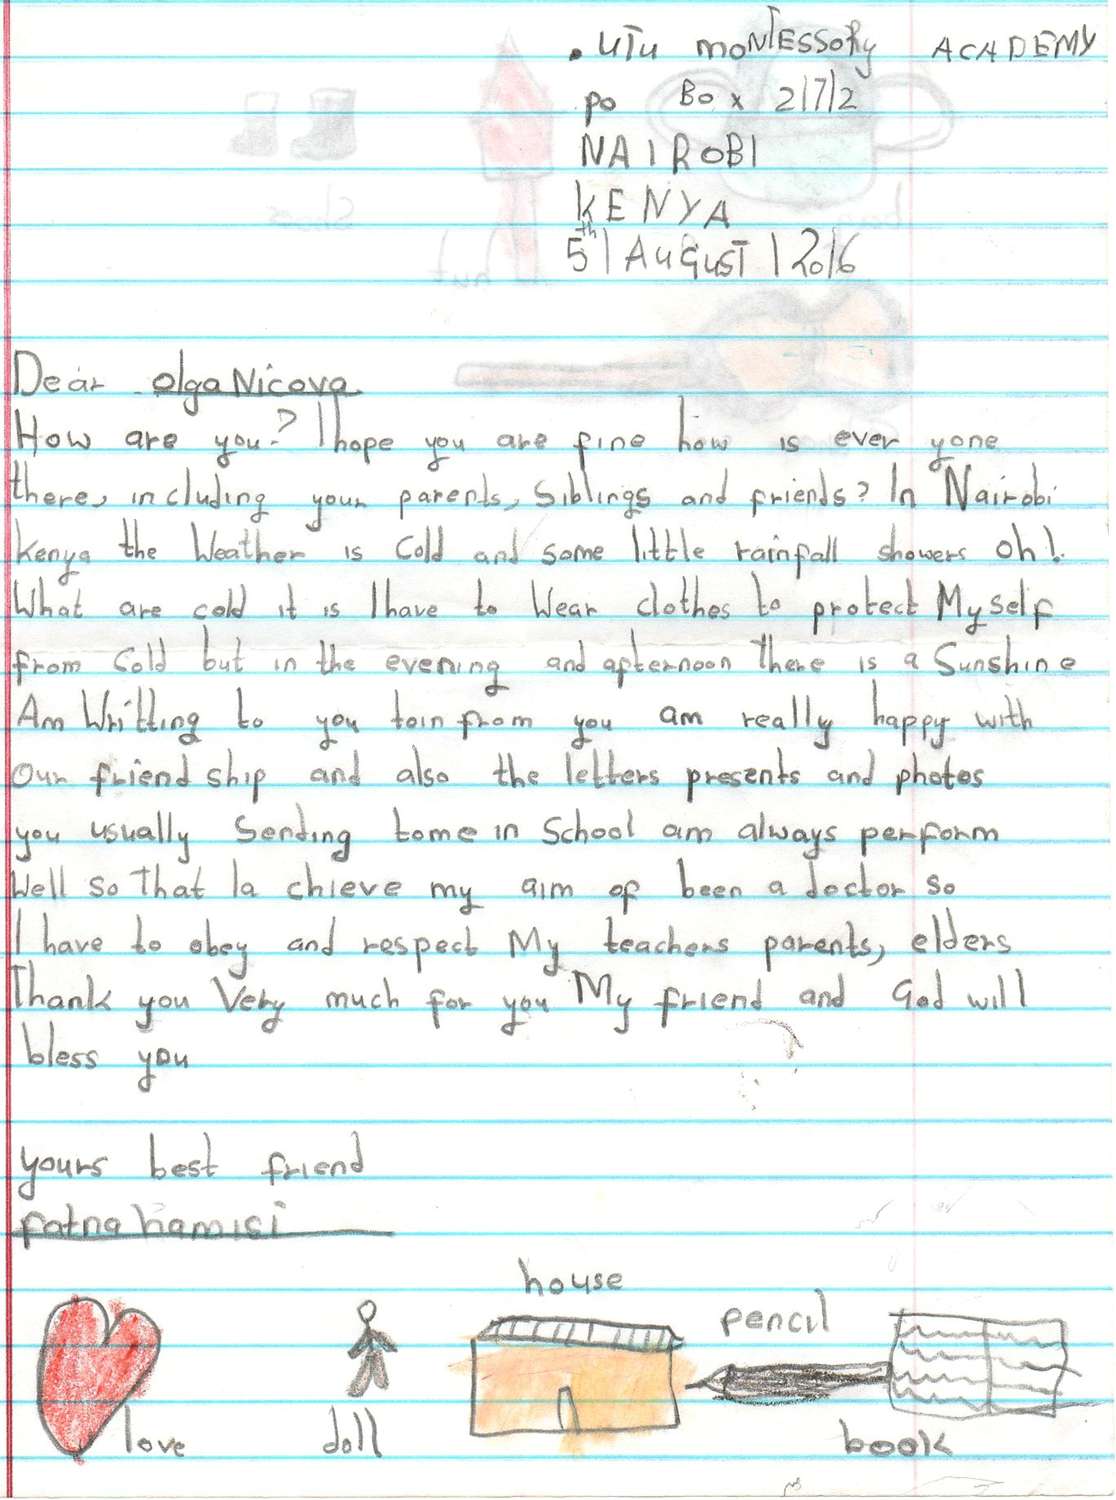 . UTU MONTESSORy ACADEMY
po Box 21712
NAIROBI
KENYA
5th | AUGUST | 2016
Dear Olga Nicova
How are you? I hope you are fine how is ever yone
there, including your parents, siblings and friends? In Nairobi
Kenya the Weather is Cold and some little rainfall showers Oh!.
What are cold it is I have to Wear clothes to protect My self
from Cold but in the evening and afternoon there is a Sunshine
Am Writting to you toin from you am really happy with
Our friend ship and also the letters presents and photos
you usually Sending tome in School am always perform
Well so That Ia chieve my aim of been a doctor so
I have to obey and respect My teachers parents, elders
Thank you Very much for you My friend and God will
bless you
yours best friend
fatna hamisi
house
pencil
love doll book